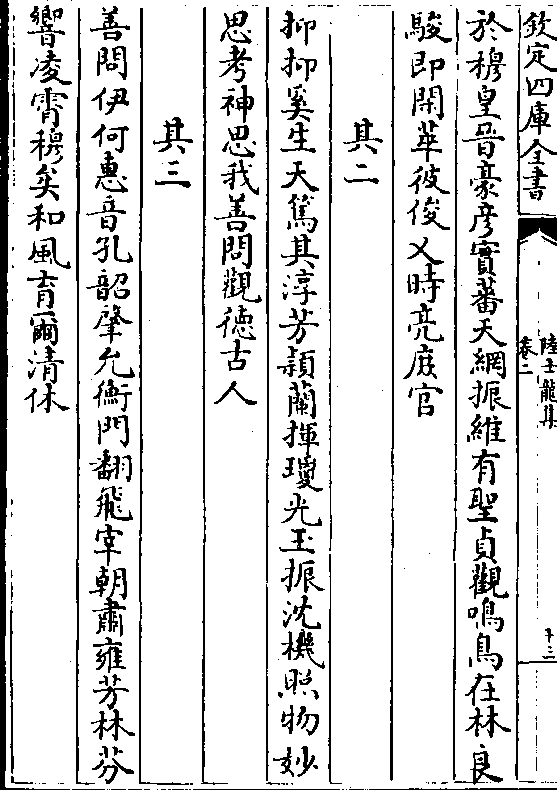 欽定四庫全書
陸士龍集
卷二
十三
於穆皇晉豪彦實蕃天網振維有聖貞觀鳴鳥在林良
駿即閑萃彼俊乂時亮庶官
其二
抑抑奚生天篤其淳芳頴蘭揮瓊光玉振沈機照物妙
思考神思我善問觀德古人
其三
善問伊何惠音孔韶肇允衡門翻飛宰朝肅雍芳林芬
響凌霄穆矣和風育爾清休